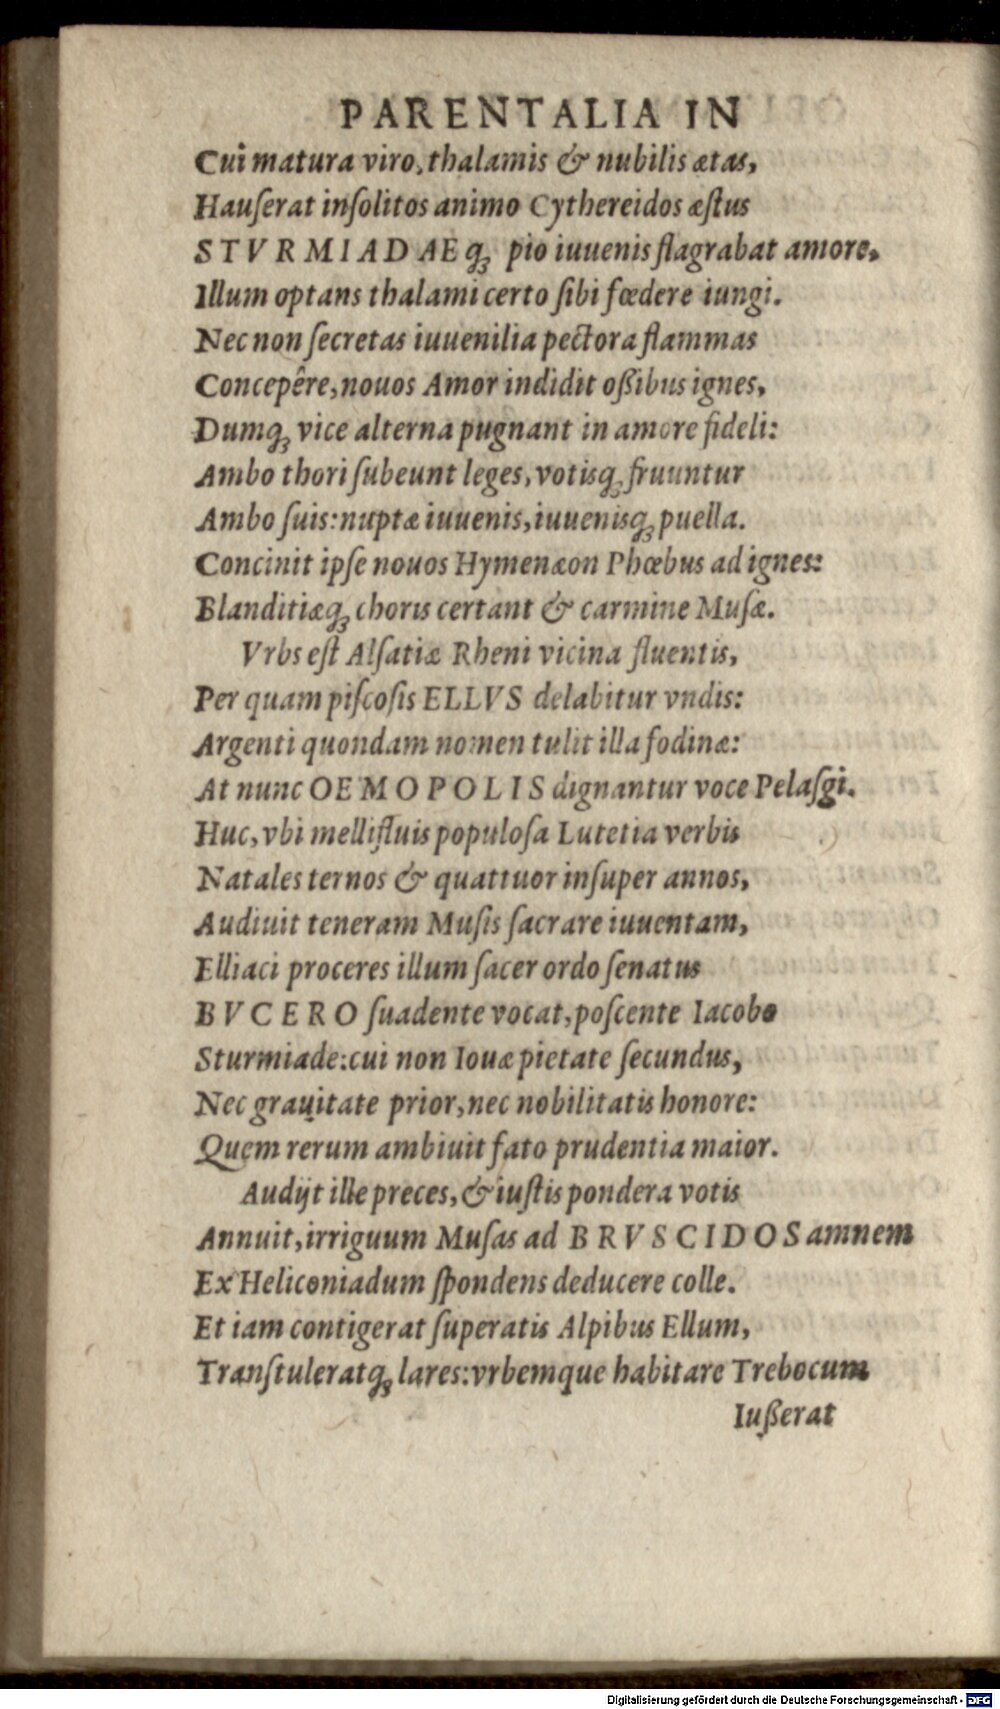 PARENTALIA IN
Cui matura viro, thalamis & nubilis ætas,
Hauſerat inſolitos animo Cythereidos æſtus
STVRMIADAEq́ꝫ pio iuuenis flagrabat amore.
Illum optans thalami certo ſibi fœdere iungi.
Nec non ſecretas iuuenilia pectora flammas
Concepêre, nouos Amor indidit oßibus ignes,
Dumqꝫ vice alterna pugnant in amore fideli:
Ambo thori ſubeunt leges, votisqꝫ fruuntur
Ambo ſuis: nuptæ iuuenis, iuuenisqꝫ puella.
Concinit ipſe nouos Hymenæon Phœbus ad ignes:
Blanditiæqꝫ choris certant & carmine Muſæ.
Vrbs eſt Alſatiæ Rheni vicina fluentis,
Per quam piſcoſis ELLVS delabitur vndis:
Argenti quondam nomen tulit illa fodinæ:
At nunc OEMOPOLIS dignantur voce Pelaſgi.
Huc, vbi mellifluis populoſa Lutetia verbis
Natales ternos & quattuor inſuper annos,
Audiuit teneram Muſis ſacrare iuuentam,
Elliaci proceres illum ſacer ordo ſenatus
BVCERO ſuadente vocat, poſcente Iacobo
Sturmiade: cui non Iouæ pietate ſecundus,
Nec grauitate prior, nec nobilitatis honore:
Quem rerum ambiuit fato prudentia maior.
Audijt ille preces, & iuſtis pondera votis
Annuit, irriguum Muſas ad BRVSCIDOS amnem
Ex Heliconiadum ſpondens deducere colle.
Et iam contigerat ſuperatis Alpibus Ellum,
Tranſtuleratqꝫ lares: vrbemque habitare Trebocum
Iußerat
Digitalisierung gefördert durch die Deutsche Forschungsgemeinschaft - DFG